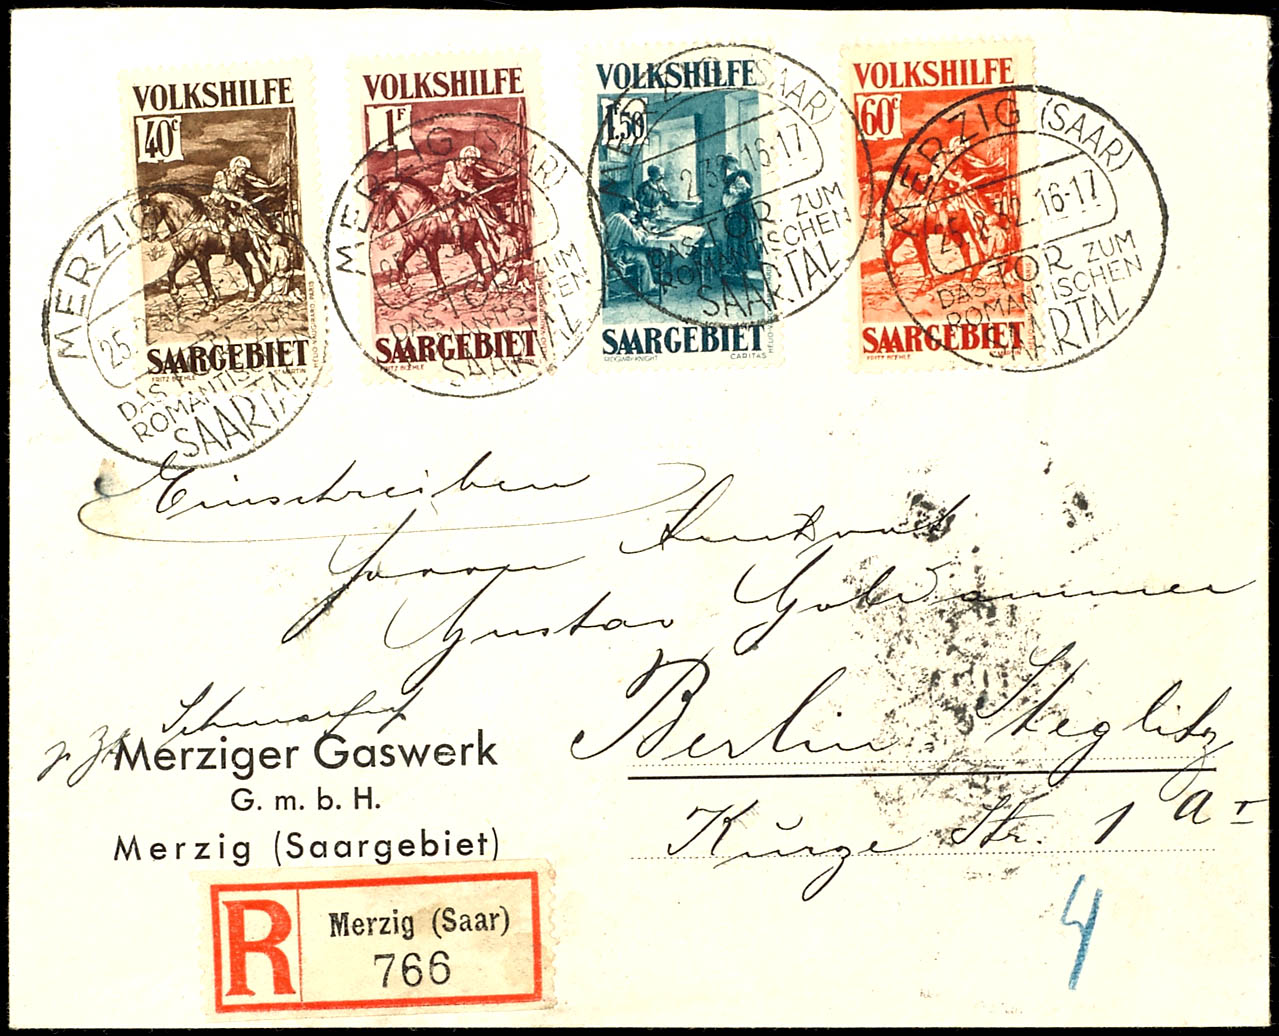 VOLKSHILFE
40c
SAARGEBIET
FRITZ BOEHLE
ST. MARTIN
HELIO VAUGIRARD PARIS
VOLKSHILFE
1F
SAARGEBIET
FRITZ BOEHLE
VOLKSHILFE
1F,50
SAARGEBIET
RIDGWAY-KNIGHT
CARITAS
VOLKSHILFE
60c
SAARGEBIET
FRITZ BOEHLE
ST. MARTIN
MERZIG
25.
DAS
ROMANTISCHEN
SAARTAL
MERZIG (SAAR)
DAS TOR ZUM
ROMANTISCHEN
SAARTAL
MERZIG (SAAR)
16-17
DAS TOR ZUM
ROMANTISCHEN
SAARTAL
MERZIG (SAAR)
25.8.32.16-17
DAS TOR ZUM
ROMANTISCHEN
SAARTAL
Einschreiben
Herrn
Gustav Goldammer
Berlin Steglitz
Kurze Str. 1 a I
Merziger Gaswerk
G. m. b. H.
Merzig (Saargebiet)
R
Merzig (Saar)
766
4